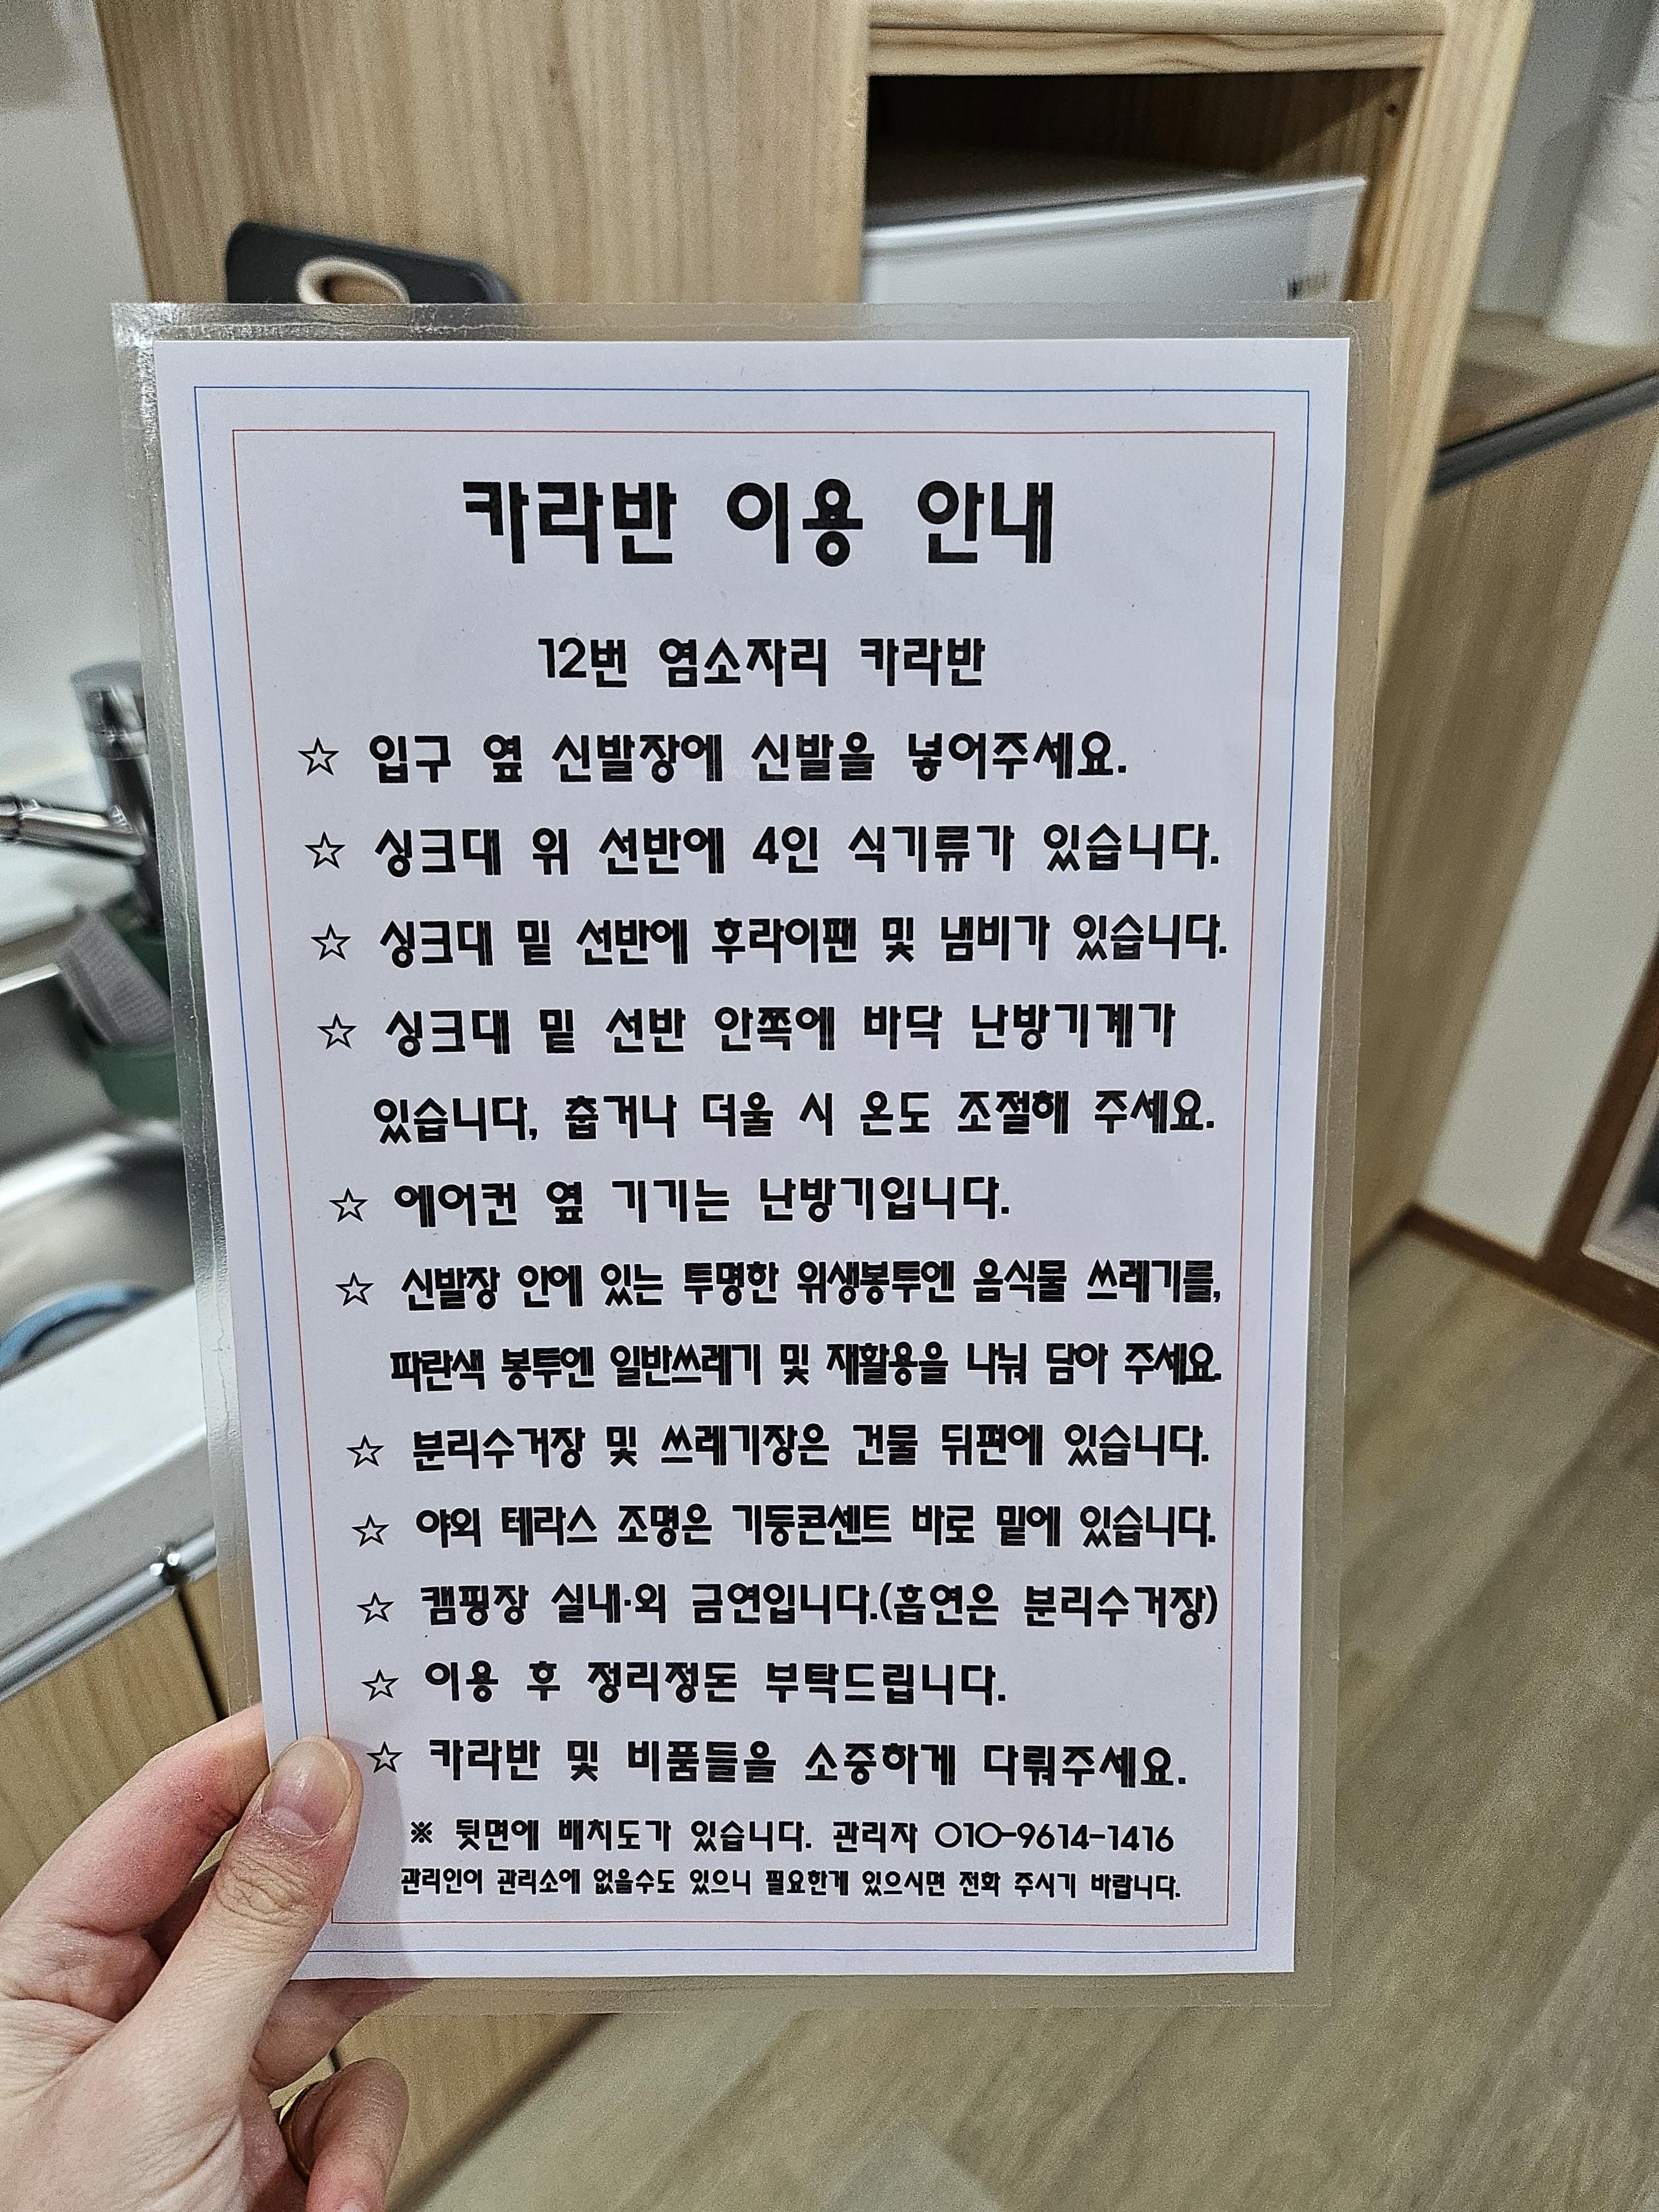 카라반 이용 안내
12번 염소자리 카라반
☆ 입구 옆 신발장에 신발을 넣어주세요.
☆ 싱크대 위 선반에 4인 식기류가 있습니다.
☆ 싱크대 밑 선반에 후라이팬 및 냄비가 있습니다.
☆ 싱크대 밑 선반 안쪽에 바닥 난방기계가
있습니다, 춥거나 더울 시 온도 조절해 주세요.
☆ 에어컨 옆 기기는 난방기입니다.
☆ 신발장 안에 있는 투명한 위생봉투엔 음식물 쓰레기를,
파란색 봉투엔 일반쓰레기 및 재활용을 나눠 담아 주세요.
☆ 분리수거장 및 쓰레기장은 건물 뒤편에 있습니다.
☆ 야외 테라스 조명은 기둥콘센트 바로 밑에 있습니다.
☆ 캠핑장 실내·외 금연입니다.(흡연은 분리수거장)
☆ 이용 후 정리정돈 부탁드립니다.
☆ 카라반 및 비품들을 소중하게 다뤄주세요.
※ 뒷면에 배치도가 있습니다. 관리자 010-9614-1416
관리인이 관리소에 없을수도 있으니 필요한게 있으시면 전화 주시기 바랍니다.